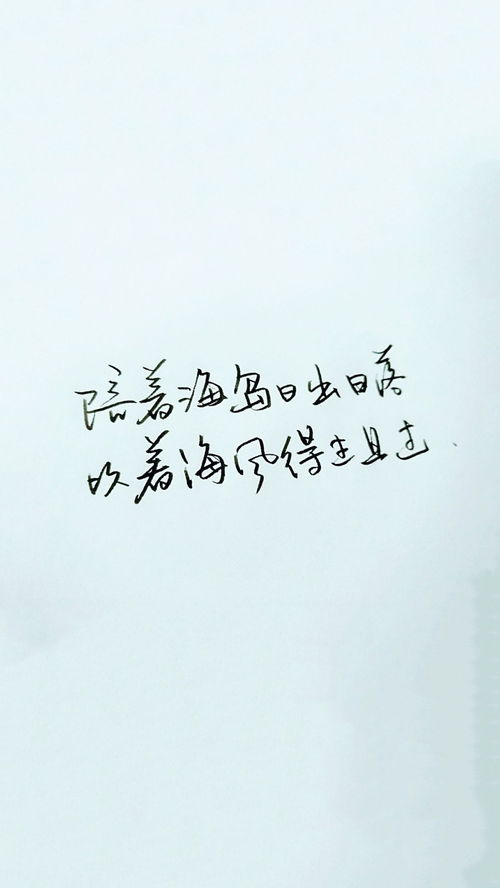 陪着海岛日出日落
吹着海风得过且过.